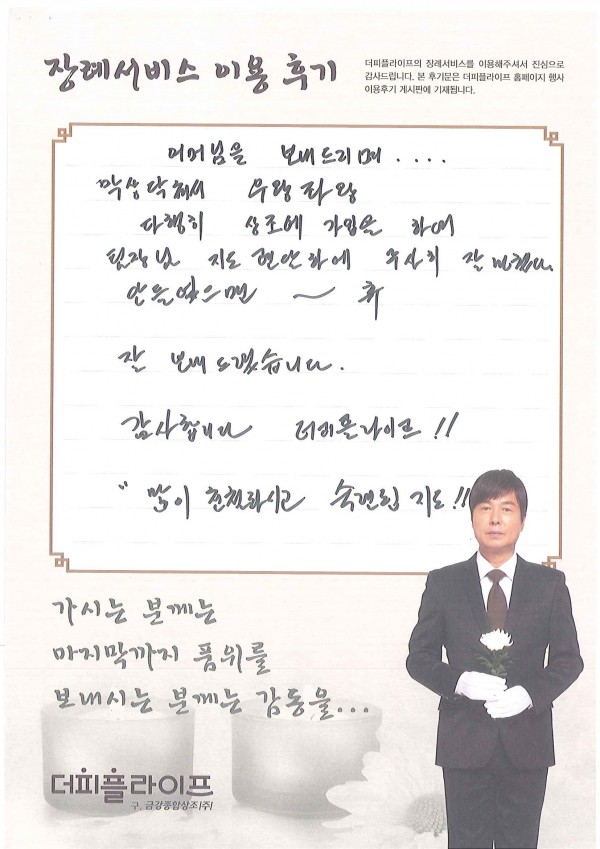 장례서비스 이용 후기
더피플라이프의 장례서비스를 이용해주셔서 진심으로
감사드립니다. 본 후기문은 더피플라이프 홈페이지 행사
이용후기 게시판에 기재됩니다.
어머님을 보내드리며 ....
막상닥쳐서 우왕좌왕
다행히 상조에 가입을 하여
팀장님 지도 편안하에 무사히 잘 마쳤다.
안들었으면 ~ 휴
잘 보내드렸습니다.
감사합니다 더피플라이프!!
" 많이 친절하시고 숙련된 지도!!
가시는 분께는
마지막까지 품위를
보내시는 분께는 감동을...
더피플라이프
구. 금강종합상조(주)